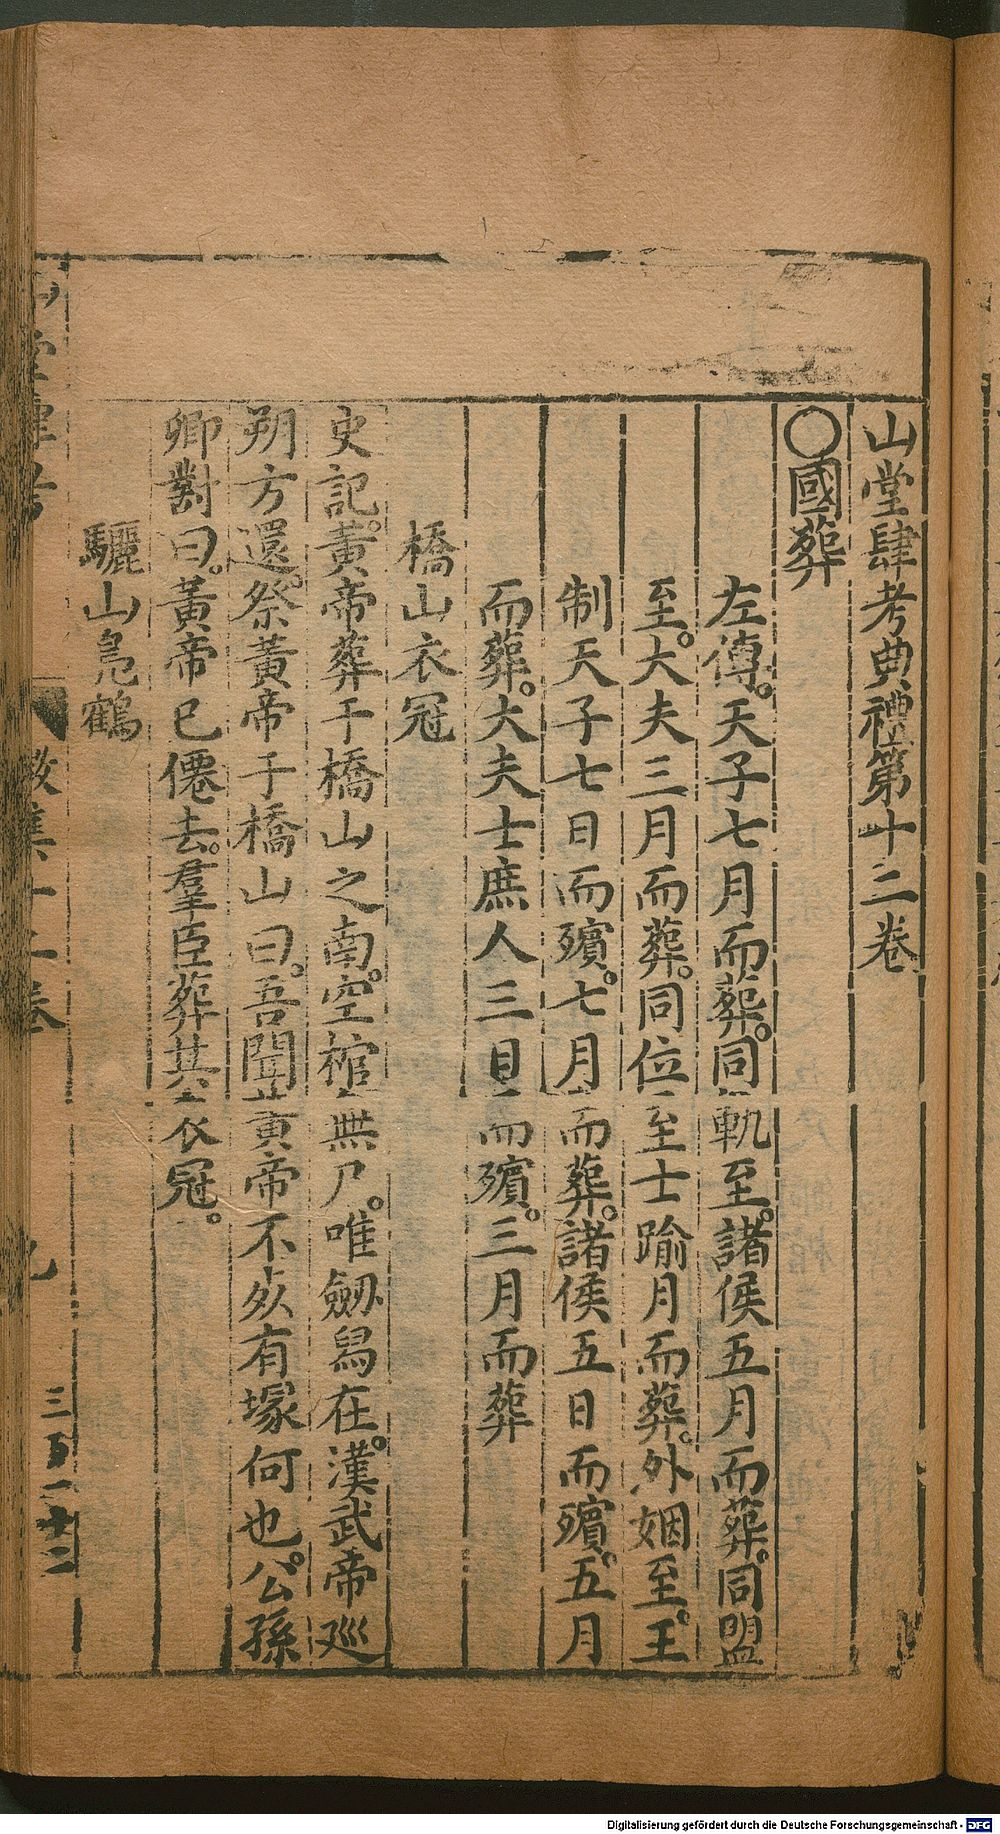 山堂肆考典禮第十二卷
〇國葬
左傳。天子七月而葬。同軌至。諸侯五月而葬。同盟
至。大夫三月而葬。同位至士踰月而葬。外姻至。王
制天子七日而殯。七月而葬。諸侯五日而殯。五月
而葬。大夫士庶人三日而殯。三月而葬
橋山衣冠
史記。黃帝葬于橋山之南。空棺無尸。唯劒舄在。漢武帝廵
朔方還。祭黃帝于橋山曰。吾聞黃帝不死有塚何也。公孫
卿對曰。黃帝已僊去。羣臣葬其衣冠。
驪山鳧鶴
集十二卷
三百一十二
Digitalisierung gefördert durch die Deutsche Forschungsgemeinschaft - DFG